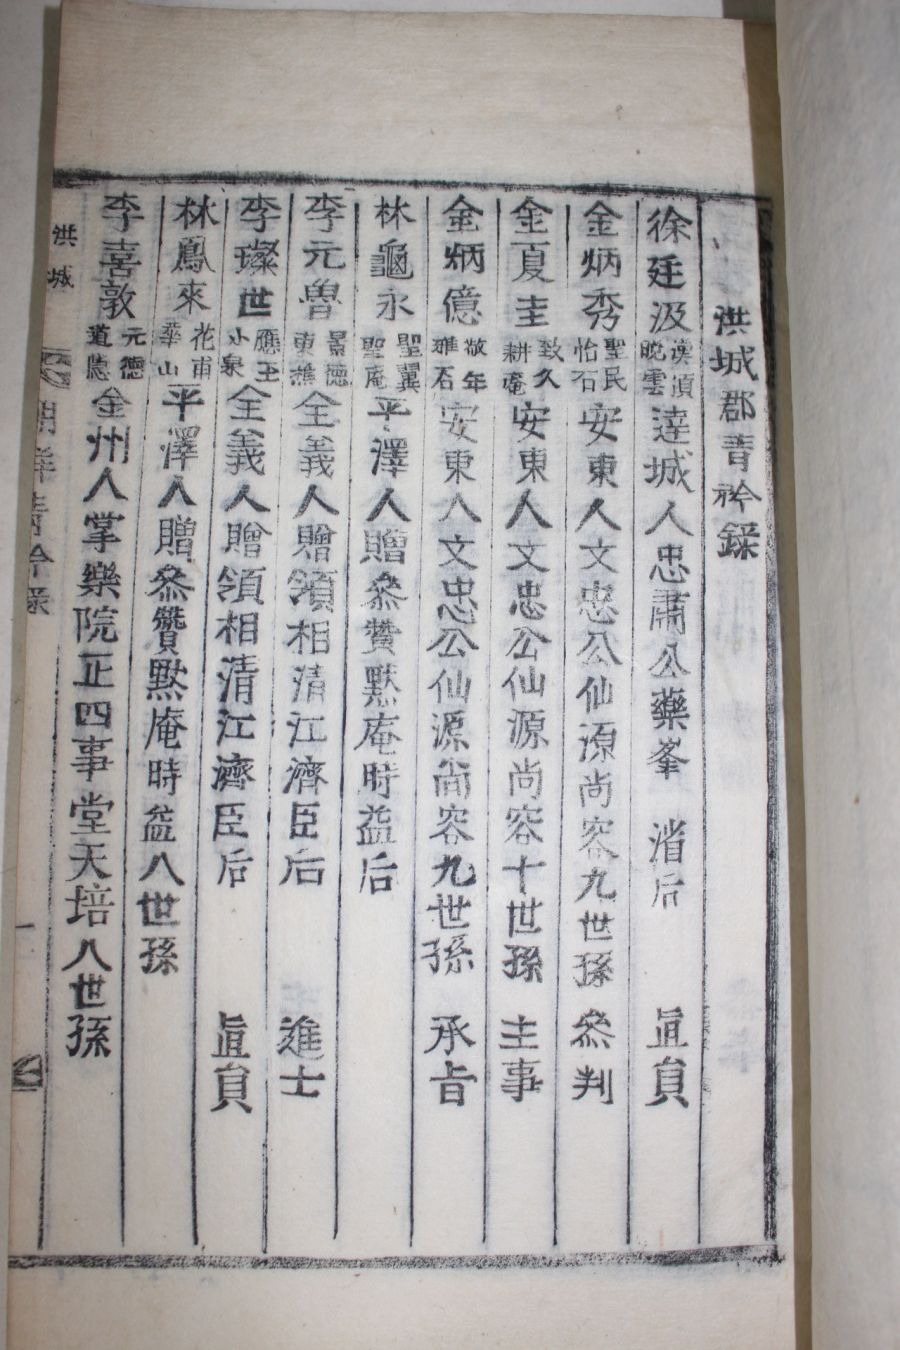 洪城郡青衿錄
徐廷汲 漢須 晩雲 達城人忠肅公藥峯 渻后 直員
金炳秀 聖民 怡石 安東人文忠公仙源尙容九世孫 叅判
金夏圭 致久 耕庵 安東人文忠公仙源尙容十世孫 主事
金炳億 敬年 安東人文忠公仙源尙容九世孫 承旨
林龜永 聖翼 聖庵 平澤人贈叅贊默庵時益后
李元魯 景德 東樵 全義人贈領相淸江濟臣后 進士
李璨世 應王 小泉 全義人贈領相淸江濟臣后 直員
林鳳來 花甫 華山 平澤人贈叅贊默庵時益八世孫
李喜敦 元德 道隱 金州人掌樂院正四事堂天培八世孫
洪城
青衿錄
一